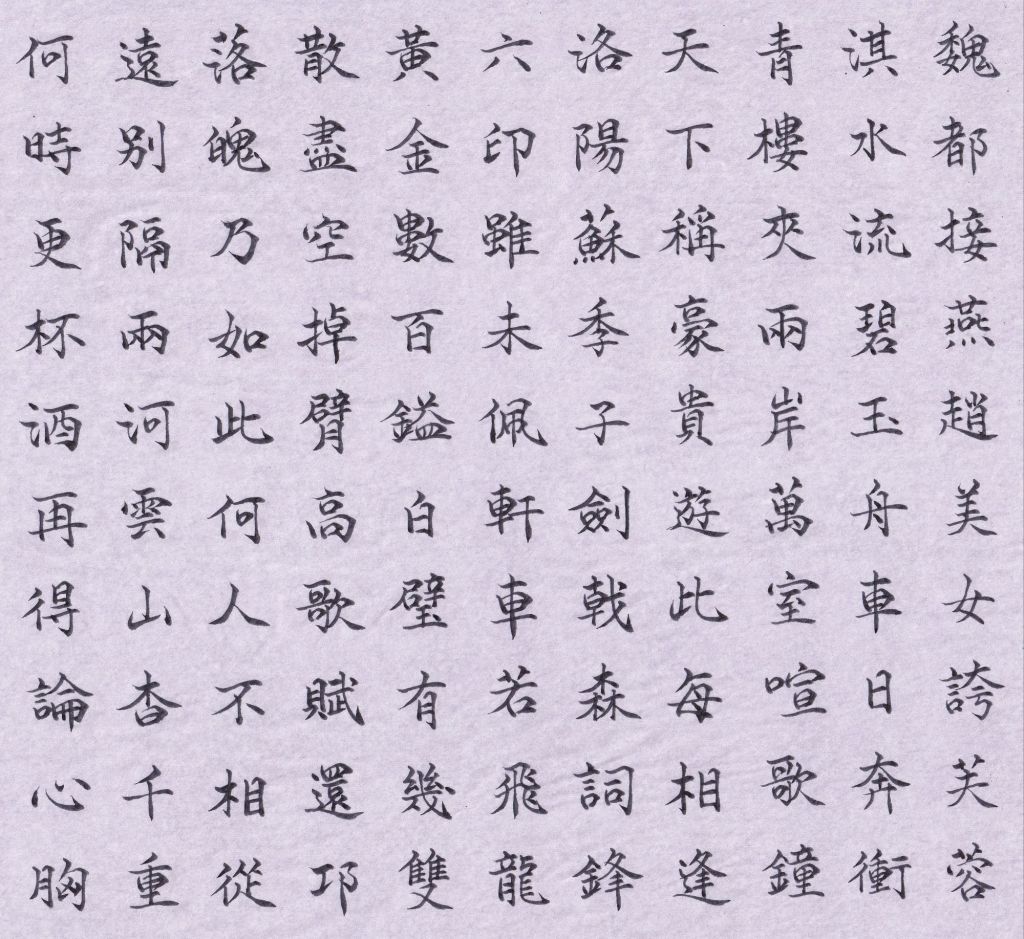 魏都接燕趙美女誇芙蓉
淇水流碧玉舟車日奔衝
青樓夾兩岸萬室喧歌鐘
天下稱豪貴遊此每相逢
洛陽蘇季子劍戟森詞鋒
六印雖未佩軒車若飛龍
黃金數百鎰白璧有幾雙
散盡空掉臂高歌賦還邛
落魄乃如此何人不相從
遠別隔兩河雲山杳千重
何時更杯酒再得論心胸